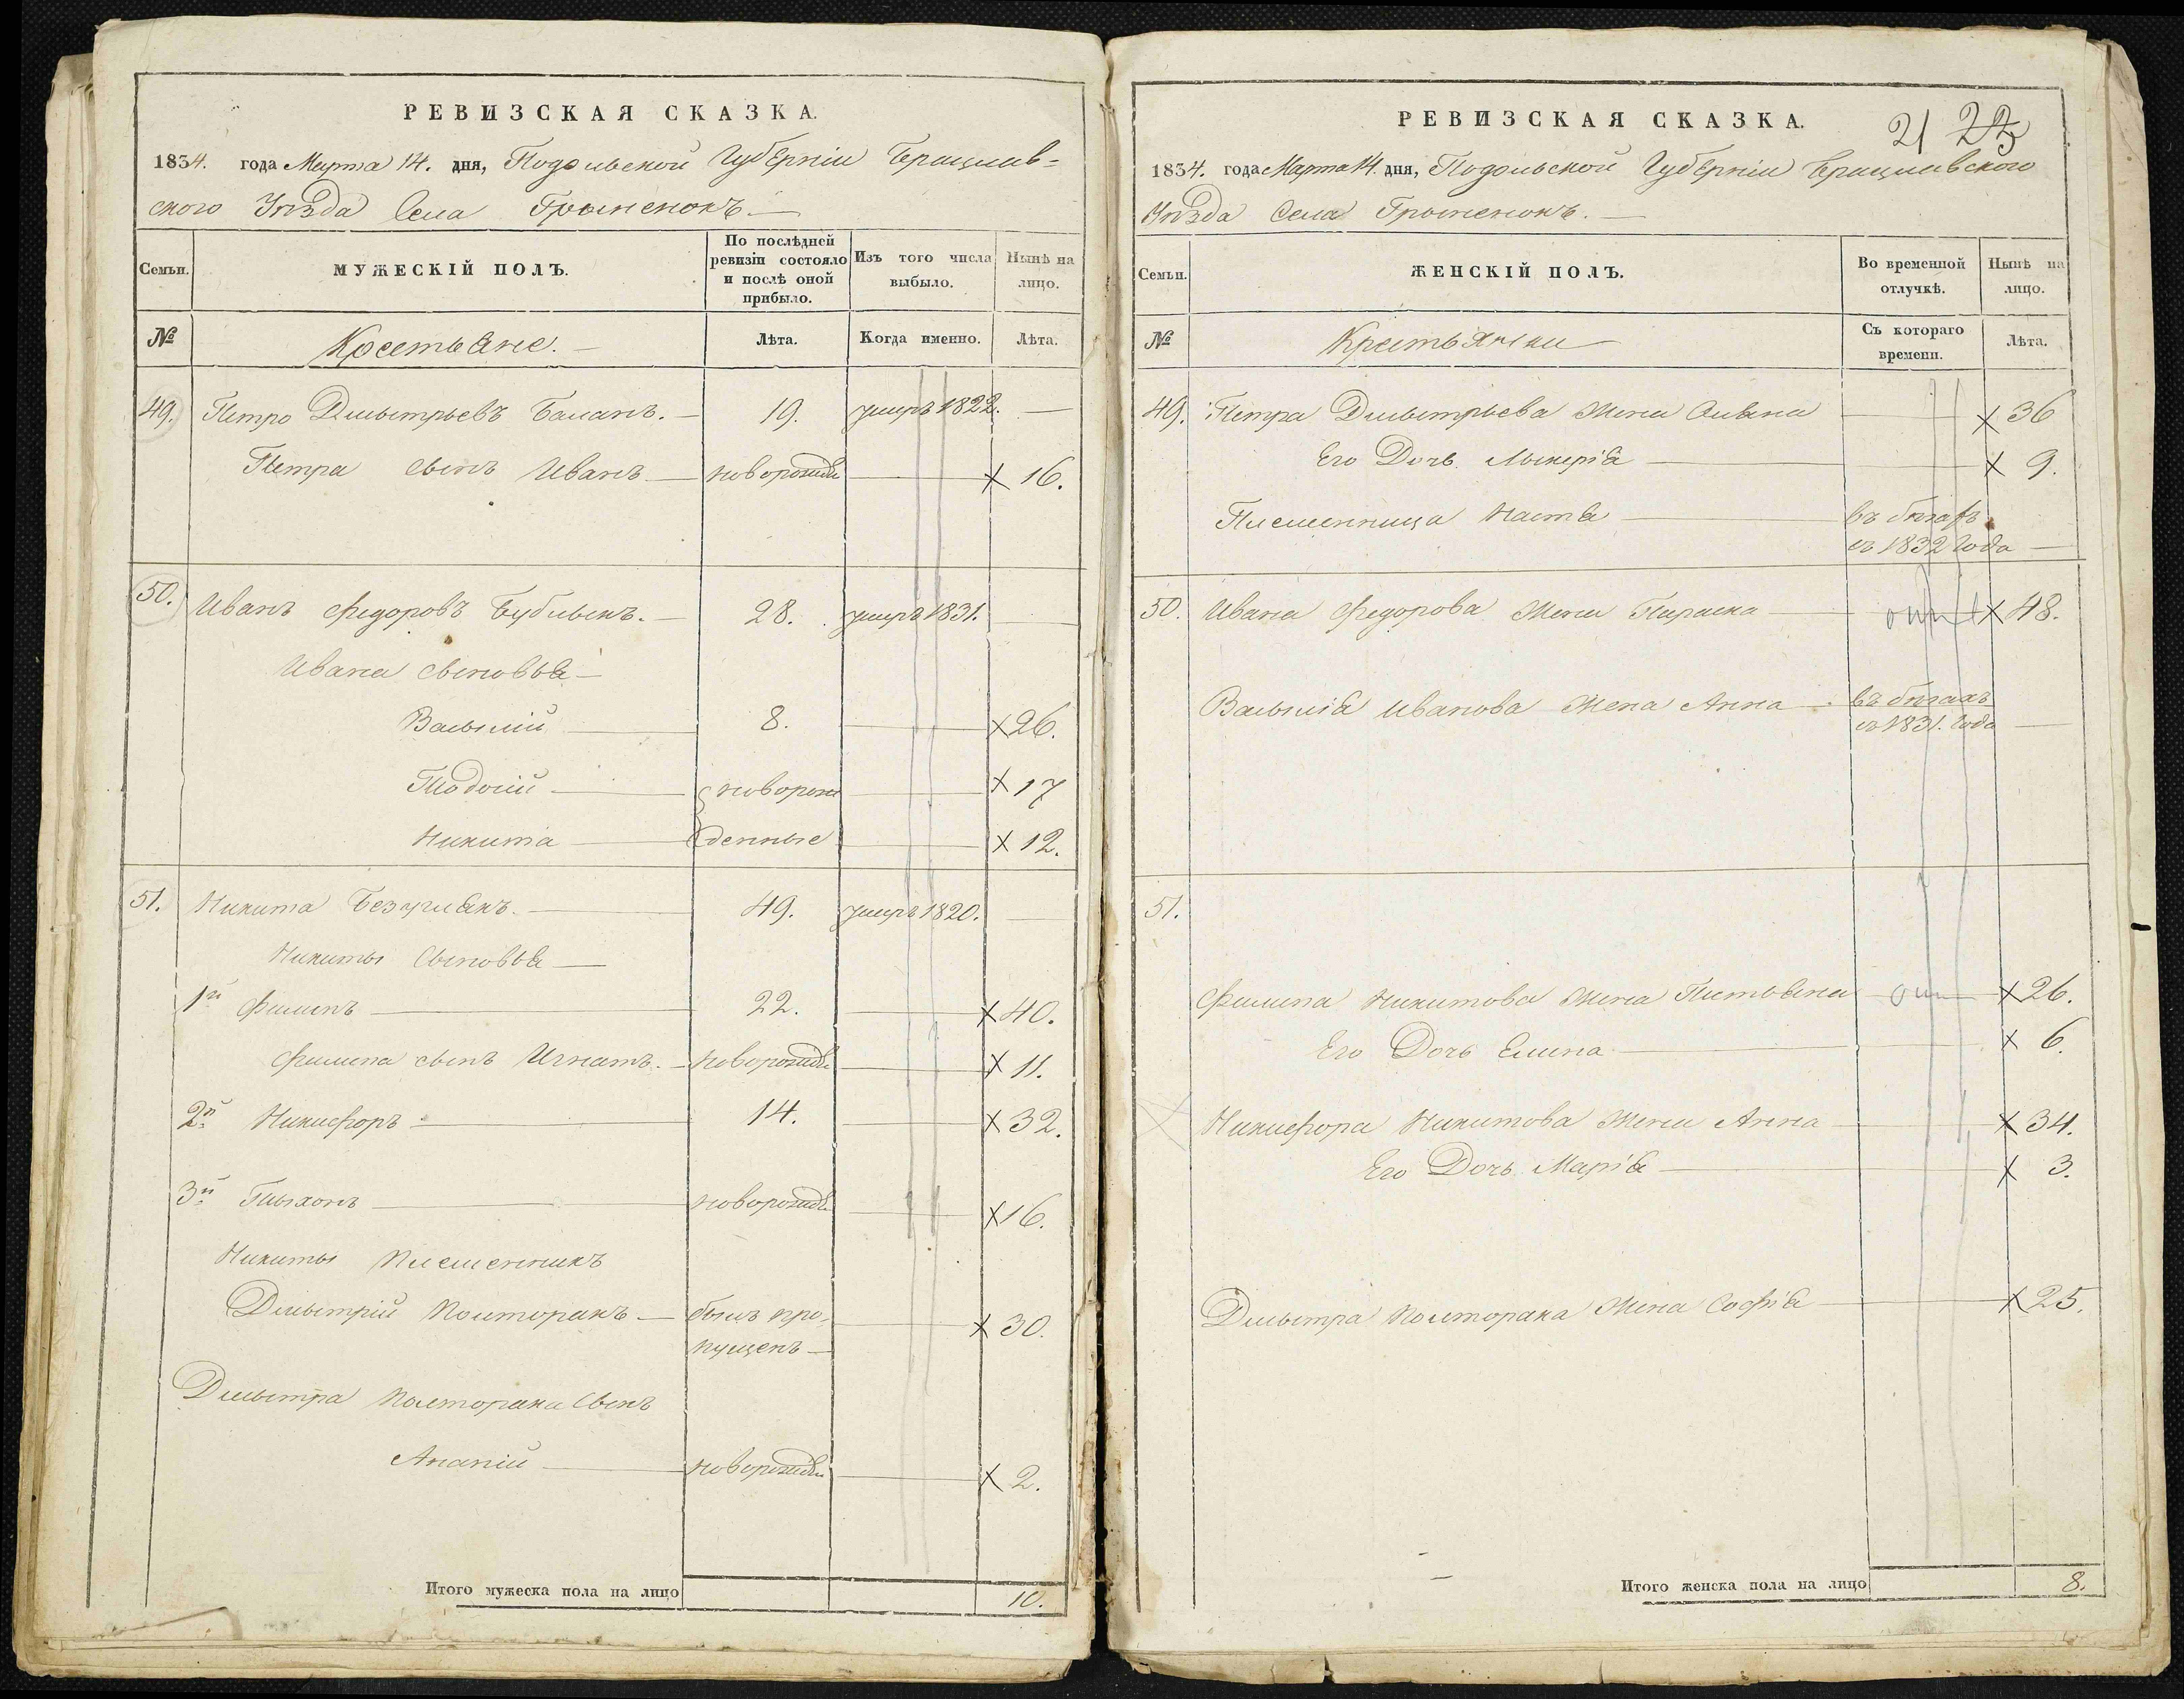 РЕВИЗСКАЯ СКАЗКА.
1834. года Марта 14. дня, Подольской Губерніи Брацлав-
ского Уѣзда Села
Семьи. МУЖЕСКІЙ ПОЛЪ. По послѣдней ревизіи состояло и послѣ оной прибыло. Изъ того числа выбыло. Нынѣ на лицо.
№ Крестьяне. Лѣта. Когда именно. Лѣта.
49. Петро Дмытрьевъ Баланъ. 19. умеръ 1822.
Петра сынъ Иванъ новорожде х 16.
50. Иванъ Федоровъ 28. умеръ 1831.
Ивана сыновья
Васылій 8. х 26.
Тодосій новорож х 17
Никита денные х 12.
51. Никита 49. умеръ 1820.
Никиты Сыновья
1й Филипъ 22. х 40.
Филипа сынъ Игнатъ. новорожде х 11.
2й Никифоръ 14. х 32.
3й Тыхонъ новорожде х 16.
Никиты племенникъ
Дмытрій Полторакъ былъ про- х 30.
пущенъ
Дмытра Полторака Сынъ
Ананій новорожде х 2.
Итого мужеска пола на лицо 10.
РЕВИЗСКАЯ СКАЗКА. 21 23
1834. года Марта 14. дня, Подольской Губерніи Брацлавского
Уѣзда Села
Семьи. ЖЕНСКІЙ ПОЛЪ. Во временной отлучкѣ. Нынѣ на лицо.
№ Крестьянки Съ котораго времени. Лѣта.
49. Петра Дмытрьева жена х 36
Его Дочь Лыкерія х 9.
Племенница Настя въ бѣгахъ
съ 1832 года
50. Ивана Федорова жена Параска х 48.
Васылія Иванова жена Анна въ бѣгахъ
съ 1831. года
51.
Филипа Никитова жена Тетьяна х 26.
Его Дочь Елена х 6.
Никифора Никитова жена Анна х 34.
Его Дочь Марія х 3.
Дмытра Полторака жена Софія х 25.
Итого женска пола на лицо 8.